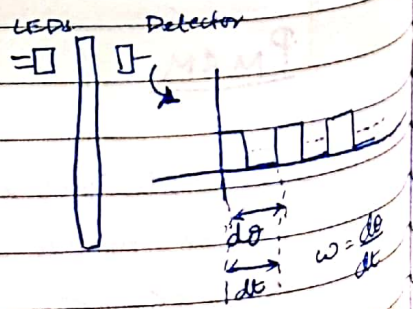 LEDs Detector
dθ
dt
ω = dθ/dt